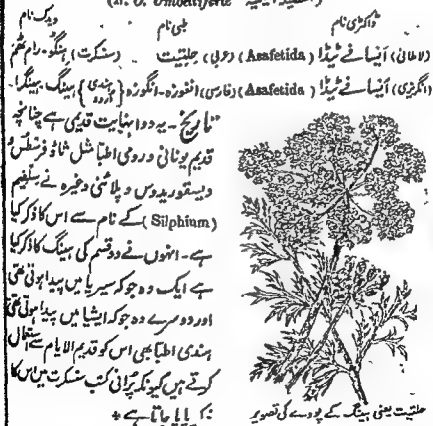 (N. O. Umbelliferæ
ڈاکٹری نام طبی نام ویدک نام
(لاطانی) آیسا فے ٹیڈا (Asafetida) (عربی) حلتیت (سنسکرت) ہنگو۔ رام ٹھم
(انگریزی) آیسا فے ٹیڈا (Asafetida) (فارسی) انغوزہ۔ انگوزہ {ہندی اردو} ہینگ۔ ہینگرا۔
تاریخ۔ یہ دوا نہایت قدیمی ہے چنانچہ
قدیم یونانی و رومی اطبا مثل ثاؤفرسٹس و
ویسقوریدوس و پلائنی وغیرہ نے سلفیم
(Silphium) کے نام سے اس کا ذکر کیا
ہے۔ انہوں نے دو قسم کی ہینگ کا ذکر کیا
ہے ایک وہ جو کہ سیریا میں پیدا ہوتی تھی
اور دوسرے وہ جو کہ ایشیا میں پیدا ہوتی تھی
ہندی اطبا بھی اس کو قدیم الایام سے استعمال
کرتے ہیں کیونکہ پرانی کتب سنسکرت میں اس کا
ذکر پایا جاتا ہے٭
حلتیت یعنی ہینگ کے پودے کی تصویر